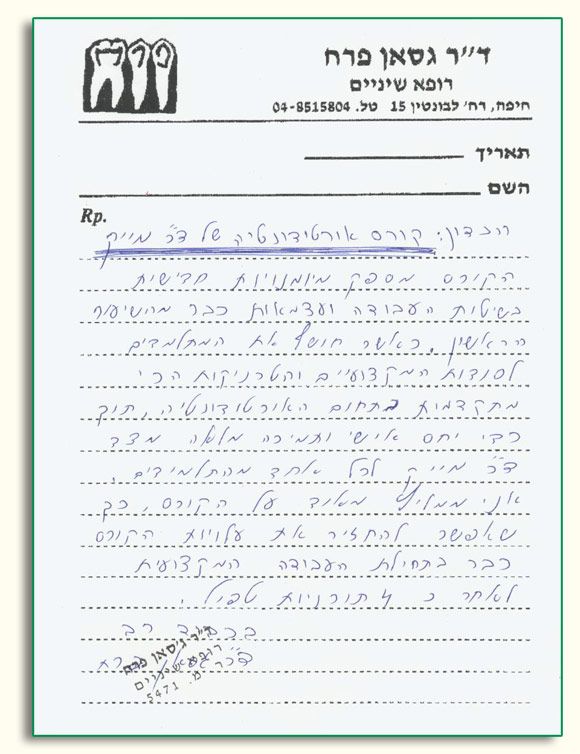 ד״ר גסאן פרח
רופא שיניים
חיפה, רח׳ לבונטין 15 טל. 04-8515804
תאריך
השם
Rp.
הנדון: קורס אורטודונטיה של ד״ר מייק
הקורס מספק מיומנויות חדישות
בשיטות העבודה ועצמאות כבר מהשיעור
הראשון, כאשר חושף את המתלמדים
לסודות המקצועיים והטכניקות הכי
מתקדמות בתחום האורטודונטיה, תוך
כדי יחס אישי ותמיכה מלאה מצד
ד״ר מייק לכל אחד מהתלמידים.
אני ממליץ מאוד על הקורס, כך
שאפשר להחזיר את עלויות הקורס
כבר בתחילת העבודה המקצועית
לאחר כ 4 תורנויות טפול.
בכבוד רב
ד״ר גסאן פרח
ד״ר ג׳סאן פרח
רופא שיניים
מ.ר. 5471